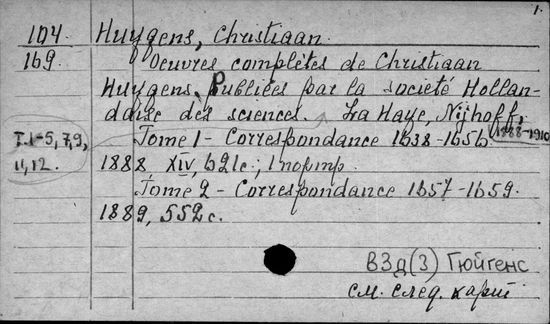 1.
104 Huygens, Christiaan.
169 Oeuvres complètes de Christiaan
Huygens. Publiées par la société Hollan-
daise des sciences. La Haye, Nijhoff,
1888-1910
T.1-5,7,9, Tome 1 - Correspondance 1638-1656.
11,12. 1888, XIV, 621c., 1 портр.
Tome 2 - Correspondance 1657-1659.
1889, 552 c.
ВЗд(3) Гюйгенс
см. след. карт